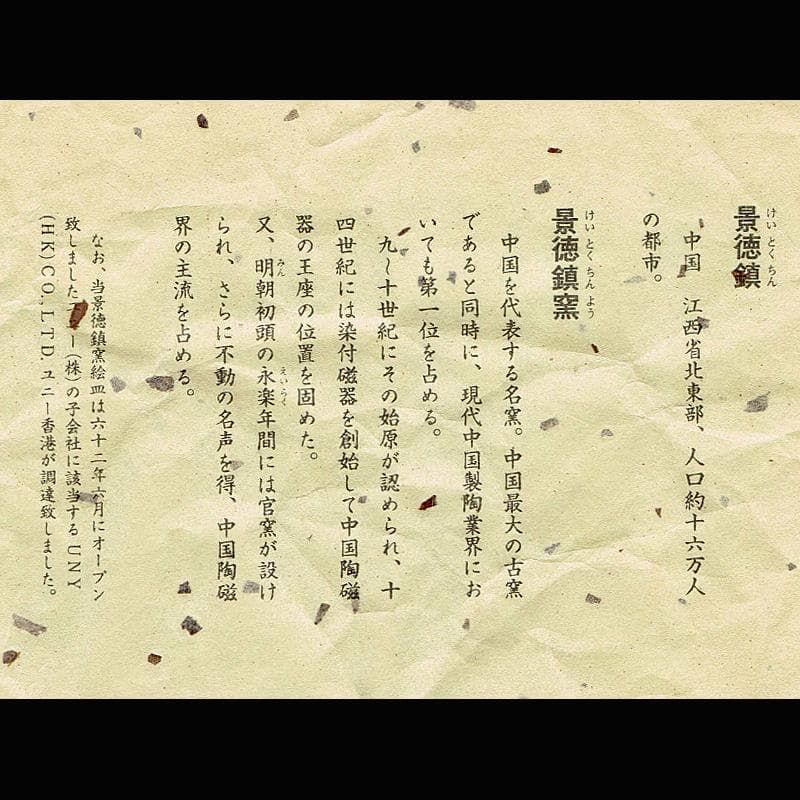 景徳鎮
けいとくちん
中国 江西省北東部、人口約十六万人
の都市。
景徳鎮窯
けいとくちんよう
中国を代表する名窯。中国最大の古窯
であると同時に、現代中国製陶業界にお
いても第一位を占める。
九〜十世紀にその始原が認められ、十
四世紀には染付磁器を創始して中国陶磁
器の王座の位置を固めた。
又、明朝初頭の永楽年間には官窯が設け
みん
えいらく
られ、さらに不動の名声を得、中国陶磁
界の主流を占める。
なお、当景徳鎮窯絵皿は六十二年六月にオープン
致しましたユニー(株)の子会社に該当するUNY
(HK)CO.,LTD.ユニー香港が調達致しました。